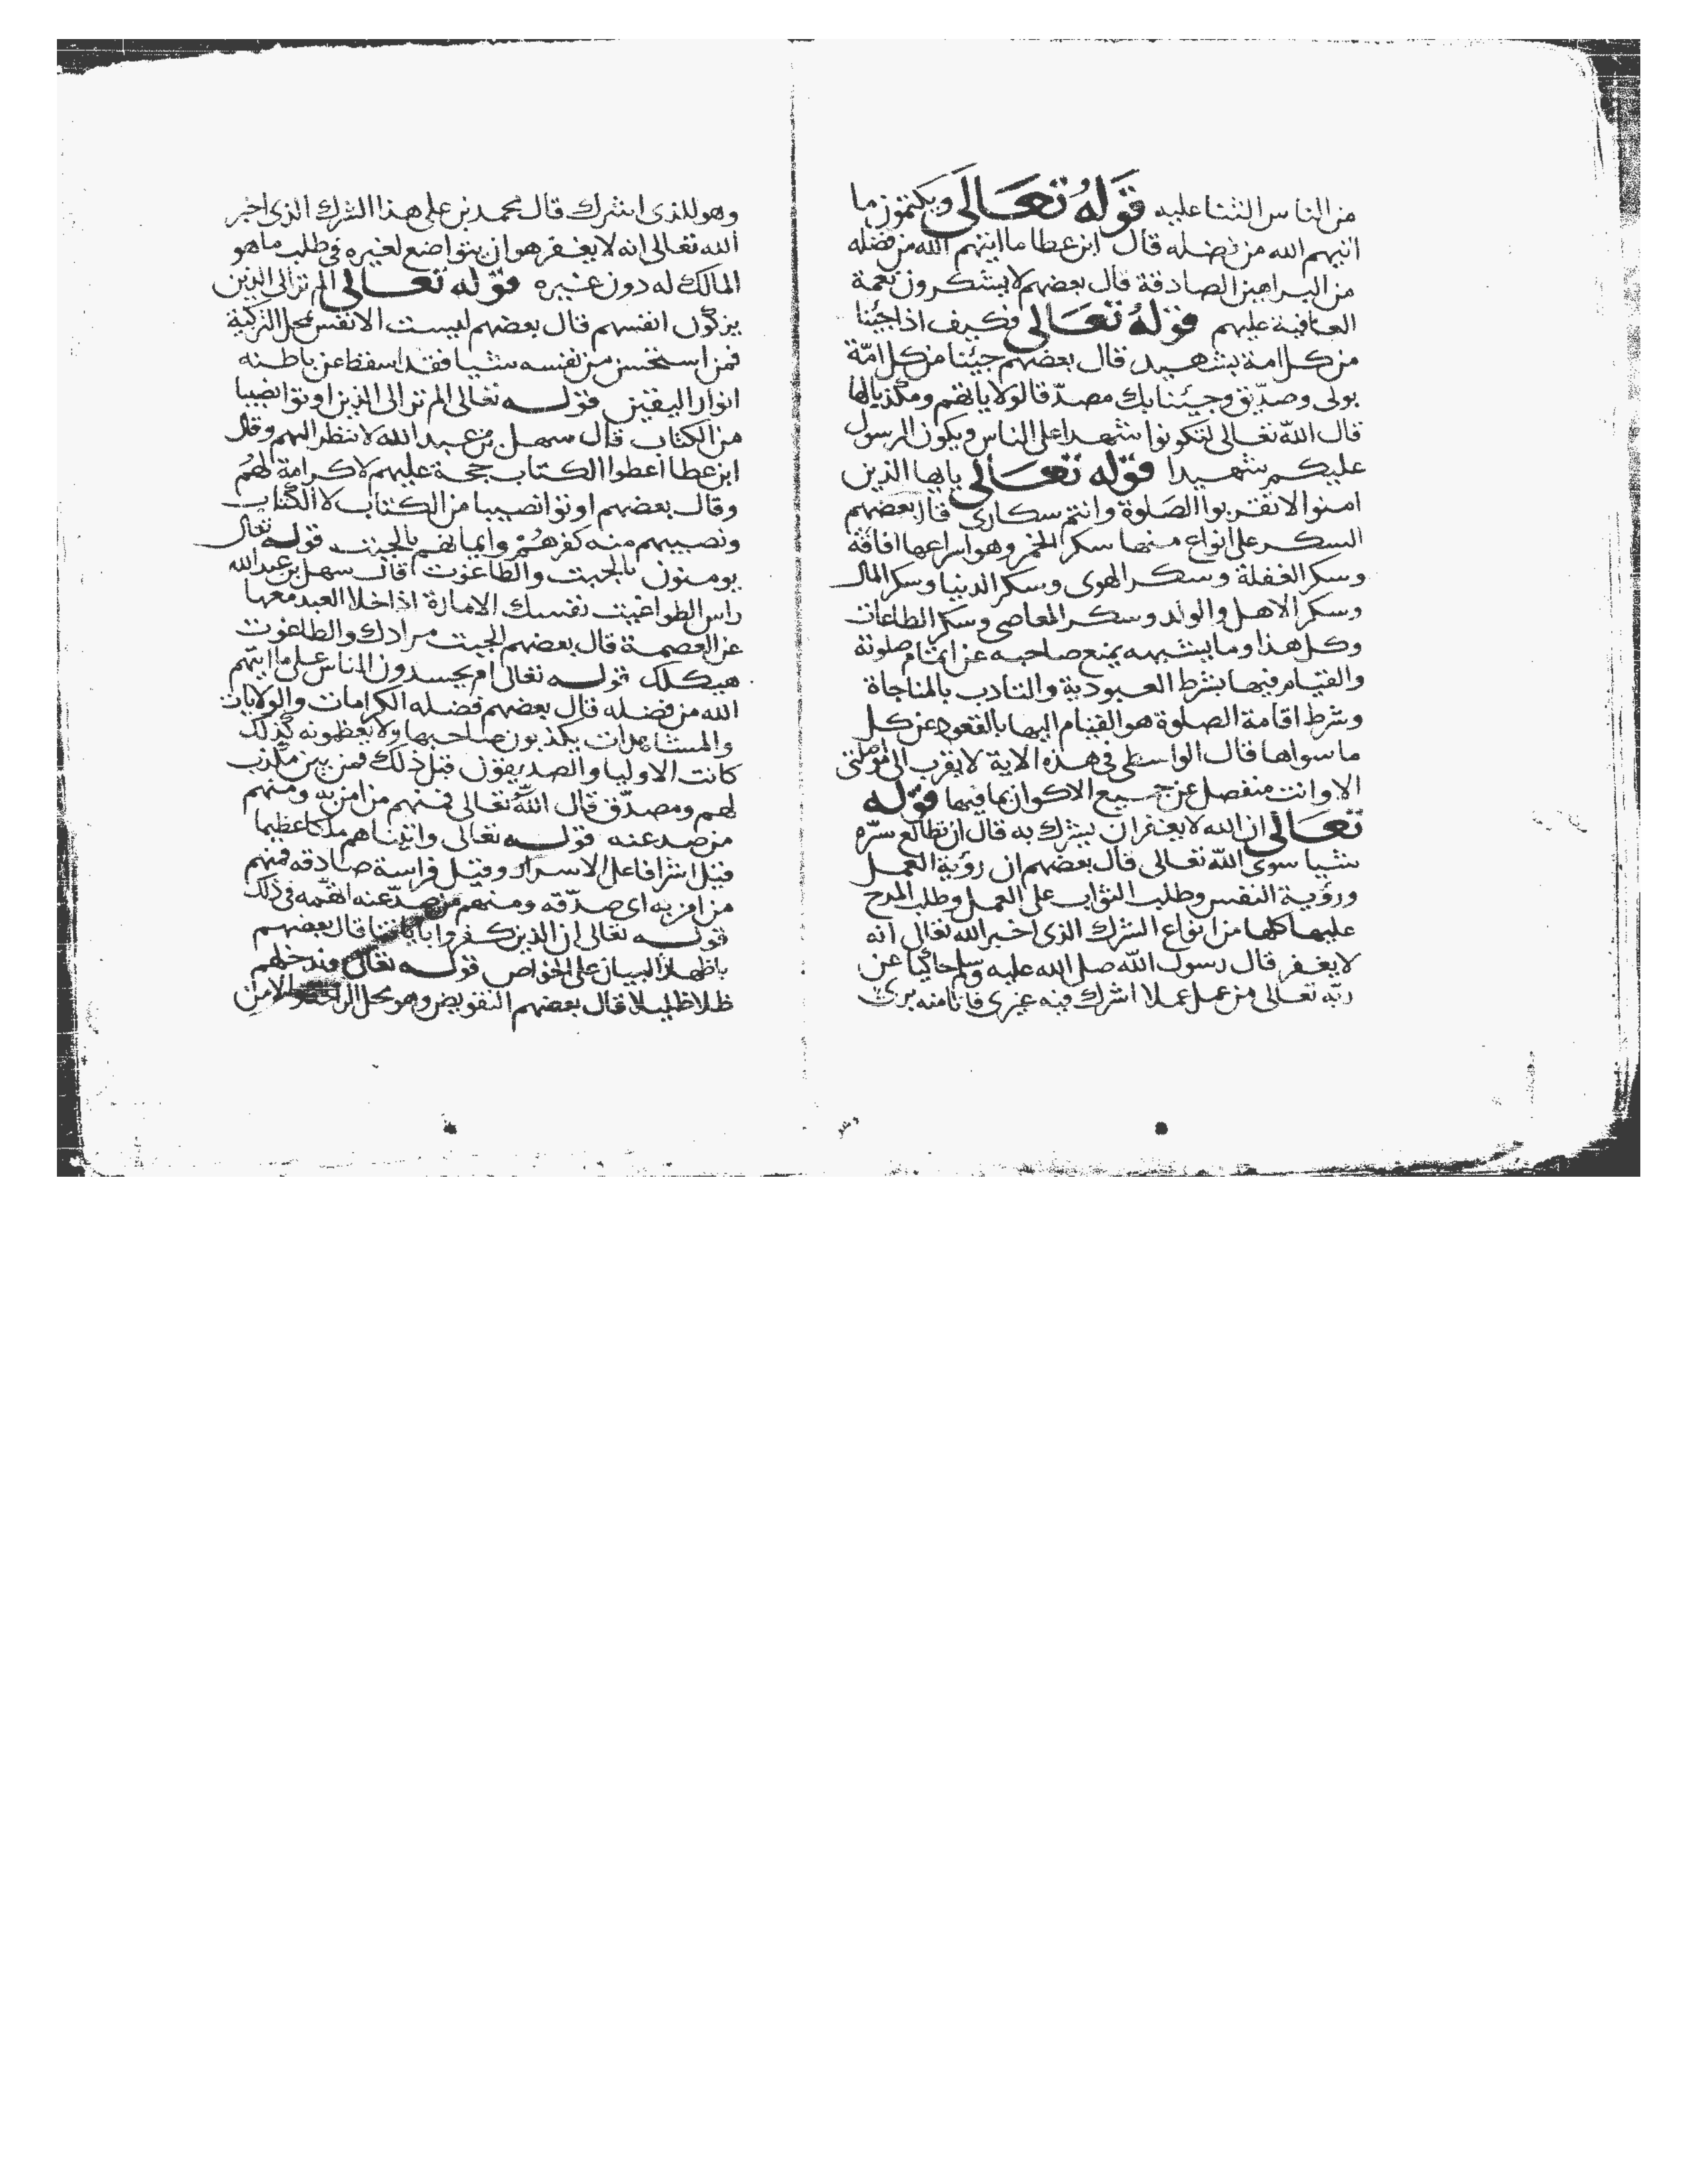 من الناس الثنا عليه قوله تعالى ويكتمون ما
اتيهم الله من فضله قال ابن عطا ما اتيهم الله من فضله
من البراهين الصادقة قال بعضهم لا يشكرون نعمة
العافية عليهم قوله تعالى فكيف اذا جئنا
من كل امة بشهيد قال بعضهم جئنا من كل امّة
بولى وصدّيق وجئنا بك مصدّقا لولاياتهم ومكذبا لها
قال الله تعالى لتكونوا شهداء على الناس ويكون الرسول
عليكم شهيدا قوله تعالى يايها الذين
امنوا لا تقربوا الصلوة وانتم سكارى قال بعضهم
السكر على انواع منها سكر الخمر وهو اسرعها افاقة
وسكر الغفلة وسكر الهوى وسكر الدنيا وسكر المال
وسكر الاهل والولد وسكر المعاصى وسكر الطاعات
وكل هذا وما يشبهه يمنع صاحبه عن اتمام صلوته
والقيام فيها بشرط العبودية والتادب بالمناجاة
وشرط اقامة الصلوة هو القيام اليها بالقعود عن كل
ما سواها قال الواسطى فى هذه الاية لا يقرب الى مواصلتى
الا وانت منفصل عن جميع الاكوان بما فيها قوله
تعالى ان الله لا يغفر ان يشرك به قال ان تطالع سرّه
شيا سوى الله تعالى قال بعضهم ان رؤية العمل
ورؤية النفس وطلب الثواب على العمل وطلب المدح
عليها كلها من انواع الشرك الذى اخبر الله تعالى انه
لا يغفر قال رسول الله صلى الله عليه وسلم حاكيا عن
ربّه تعالى من عمل عملا اشرك فيه غيرى فانا منه برئ
وهو للذى اشرك قال محمد بن على هذا الشرك الذى اخبر
الله تعالى انه لا يغفر هو ان يتواضع لغيره فى طلب ما هو
المالك له دون غيره قوله تعالى الم تر الى الذين
يزكون انفسهم قال بعضهم ليست الانفس بمحل التزكية
فمن استحسن من نفسه شيا فقد اسقط عن باطنه
انوار اليقين قوله تعالى الم تر الى الذين اوتوا نصيبا
من الكتاب قال سهل بن عبد الله لا تنظر اليهم وقال
ابن عطا اعطوا الكتاب حجة عليهم لا كرامة لهم
وقال بعضهم اوتوا نصيبا من الكتاب لا الكتاب
ونصيبهم منه كفرهم وايمانهم بالجبت قوله تعالى
يومنون بالجبت والطاغوت قال سهل بن عبد الله
راس الطواغيت نفسك الامارة اذا خلا العبد معها
عن العصمة قال بعضهم الجبت مرادك والطاغوت
هيكلك قوله تعالى ام يحسدون الناس على ما اتيهم
الله من فضله قال بعضهم فضله الكرامات والولايات
والمشاهدات يكذبون صاحبها ولا يعظمونه كذلك
كانت الاوليا والصديقون قبل ذلك فمن بين مكذب
لهم ومصدّق قال الله تعالى فمنهم من امن به ومنهم
من صد عنه قوله تعالى واتيناهم ملكا عظيما
قيل اشرافا على الاسرار وقيل فراسة صادقة فمنهم
من امن به اى صدّقه ومنهم من صدّ عنه اتهمه فى ذلك
قوله تعالى ان الذين كفروا باياتنا قال بعضهم
باظهار البيان على الخواص قوله تعالى وندخلهم
ظلا ظليلا قال بعضهم التفويض وهو محل الراحة والامن